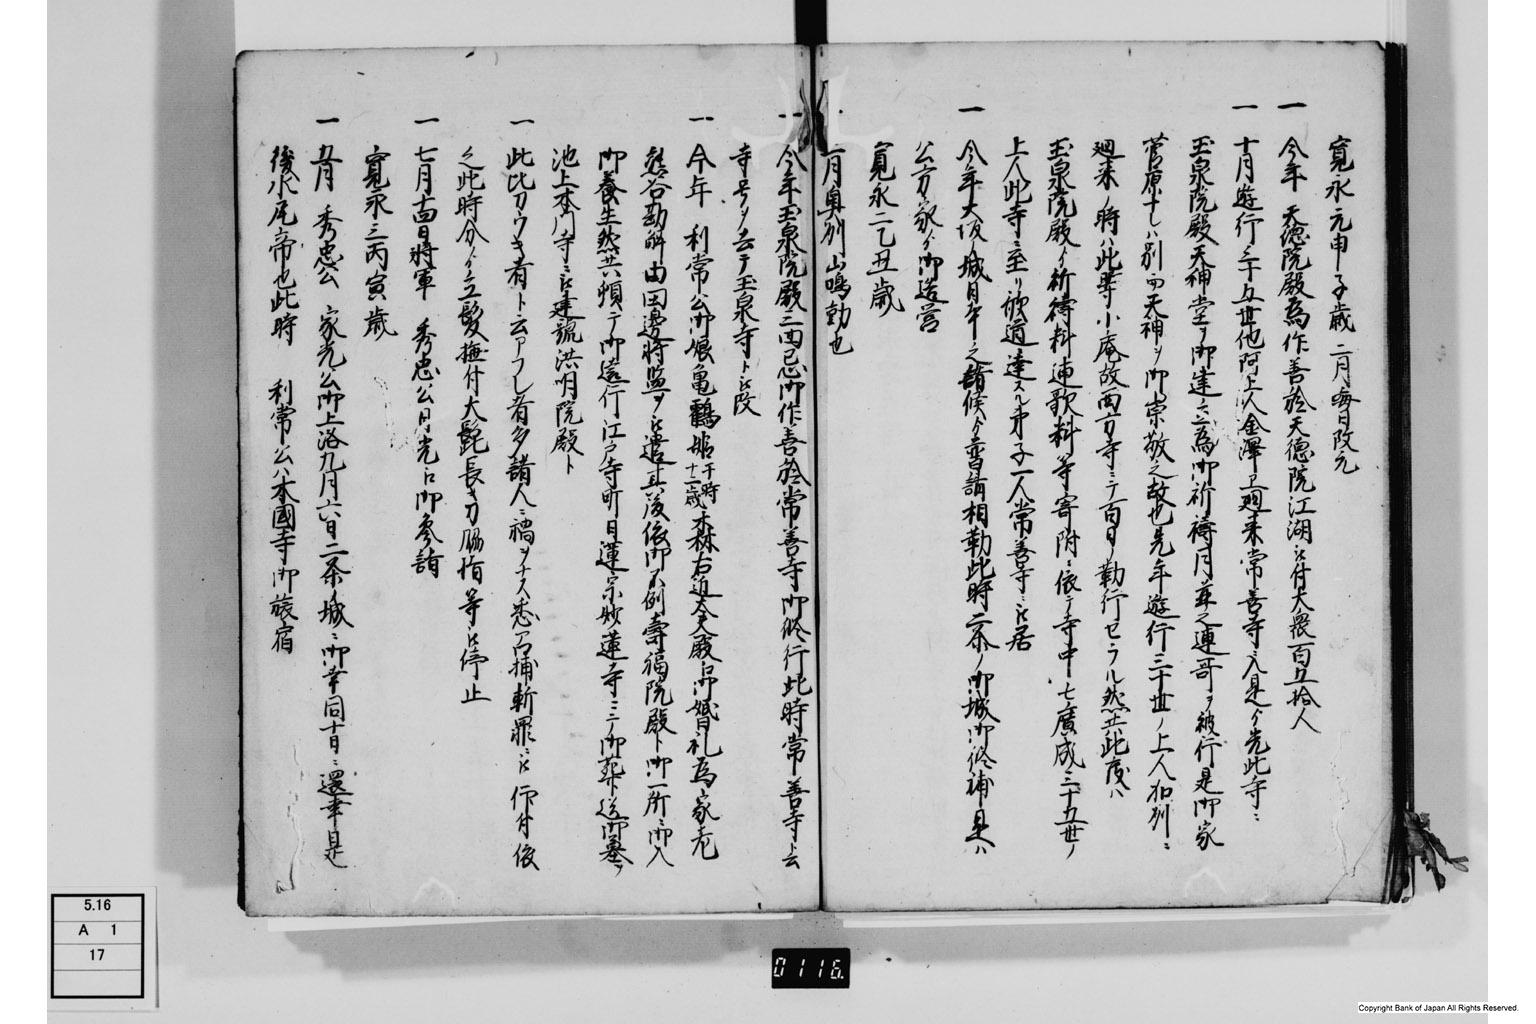 寛永元甲子歳 二月晦日改元
一 今年 天徳院殿為作善於天徳院江湖被付大衆百五拾人
一 十月遊行三十五世他阿上人金澤ヱ廻来常善寺ニ入是ゟ先此寺ニ
玉泉院殿天神堂ヲ御建立為御祈禱月並之連哥ヲ被行是御家
菅原ナレハ別而天神ヲ御崇敬之故也先年遊行三十世ノ上人加列ニ
廻来ノ時ハ此等小庵故西方寺ニテ百日ノ勤行セラル然共此度ハ
玉泉院殿ゟ祈禱料連歌料等寄附ニ依テ寺中七廣成三十五世ノ
上人此寺ニ至リ欣道達スル弟子一人常善寺ニ被居
一 今年大坂ノ城日本之諸候ゟ普請相勤此時二条ノ御城御修補是ハ
公方家ゟ御造営
寛永二乙丑歳
一 月奥列山鳴動也
一 今年玉泉院殿三回忌御作善於常善寺御修行此時常善寺ト云
寺号ヲ去テ玉泉寺ト被改
一 今年 利常公御娘亀鶴姫于時十一歳 森右近大夫殿ヱ御婚礼為家老
熊谷勘解由田邊将監ヲ被遣其後依御不例壽福院殿ト御一所ニ御入
御養生然共頓テ御遠行江戸寺町日蓮宗妙蓮寺ニテ御葬送御墓ヲ
池上本門寺ニ被建號洪明院殿ト
一 此比カウキ者ト云アフレ者多諸人ニ禍ヲナス悉召捕斬罪ニ被 仰付依
之此時分ゟ立髪撫付大髭長キ刀脇指等被停止
一 七月十四日将軍 秀忠公日光ヱ御参詣
寛永三丙寅歳
一 五月 秀忠公 家光公御上洛九月六日二条ノ城ニ御幸同十日ニ還幸是
後水尾帝也此時 利常公ハ本國寺御旅宿
5.16
A 1
17
0116.
Copyright Bank of Japan All Rights Reserved.